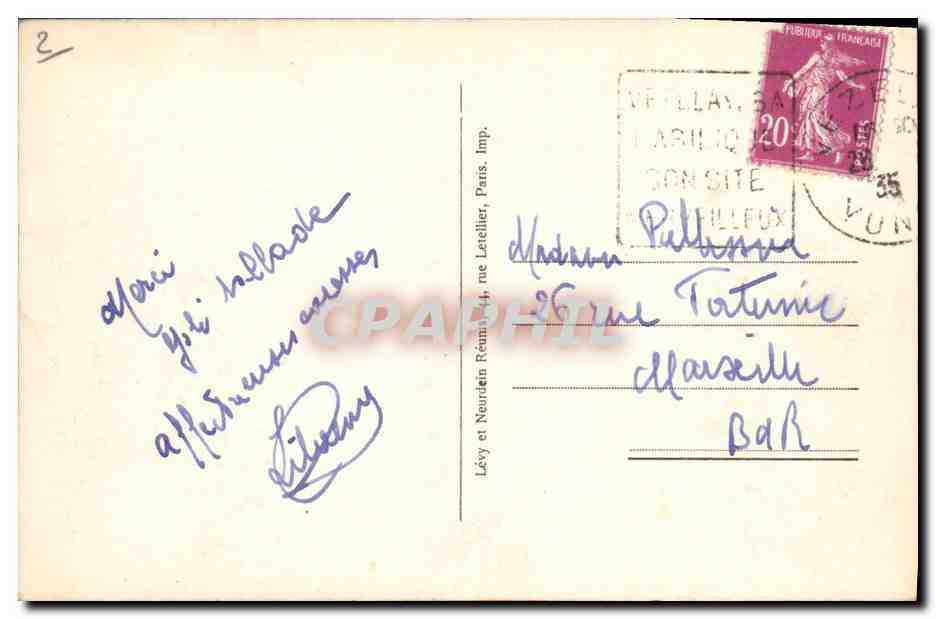 2
Merci
joli ballade
affectueuses caresses
RÉPUBLIQUE FRANÇAISE
20
POSTES
VEZELAY, SA
BASILIQUE
SON SITE
MERVEILLEUX
35
Madame
26 rue
Marseille
BdR
Lévy et Neurdein Réunis, 44, rue Letellier, Paris. Imp.
CPAPHIL